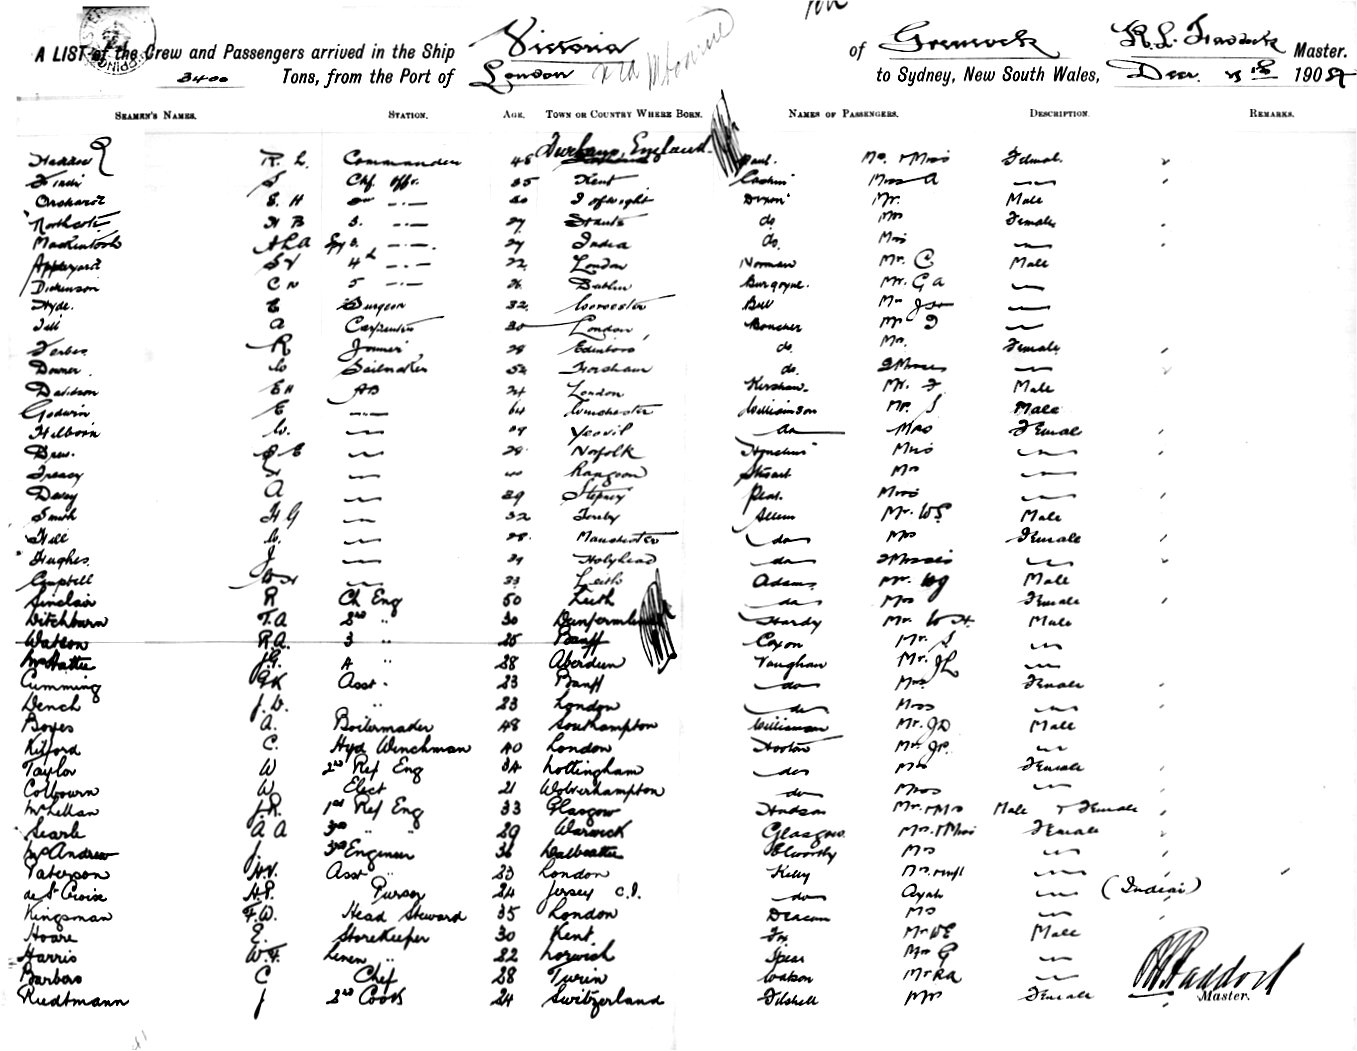 A LIST of the Crew and Passengers arrived in the Ship Victoria of Greenock R. L. Haddock Master.
3400 Tons, from the Port of London via to Sydney, New South Wales, Decr 1904
SEAMEN'S NAMES. STATION. AGE. TOWN OR COUNTRY WHERE BORN. NAMES OF PASSENGERS. DESCRIPTION. REMARKS.
R. L. Commander 48 England Paul. Female
Chf. Offr. 35 Kent Miss A
Orchard S. H 30 I of Wight Dixon Mr. Male
Northcote H B 3. 27 Hants do Mrs Female
Mackintosh A L A 3. 27 India do. Miss
Appleyard 4th 22 London Norman Mr. C Male
Dickinson C N 5 Dublin Burgoyne. Mr. G A
Hyde. E Surgeon 32 Worcester Bell Mr
Tell A Carpenter 30 London Boucher Mr
Forbes R Joiner 28 Edinboro do. Mrs. Female
Downer. W Sailmaker 52 Horsham do.
Davidson E H AB 24 London Kershaw. Mr. F Male
Godwin E 64 Winchester Williamson Mr. J Male
Helborn W. 29 Yeovil do Mrs Female
Drew. 28 Norfolk Miss
Treacy Rangoon Stuart Mrs
Davey A 29 Stepney Miss
Smith H G 32 Tenby Allem Mr. WS Male
Hill W. 28 Manchester do Mrs Female
Hughes J 29 Holyhead do 2 Misses
Campbell 33 Leith Adams Mr. Male
Sinclair R Ch Eng 50 Leith do Mrs Female
Ditchburn T. A 2nd " 30 Dunfermline Hardy Mr. W H Male
Watson R. A. 3 " 25 Banff Coxon Mr. S
McHattie J. G. 4 " 28 Aberdeen Vaughan Mr. J L
Cumming G K Asst " 23 Banff do Mrs Female
Dench J. W. " 23 London do Miss
Boyes A. Boilermaker 48 Southampton Williamson Mr. J D Male
Kifford C. Hyd Winchman 40 London Hooton Mr. J P.
Taylor W 2nd Ref Eng 34 Nottingham do Mrs Female
Colbourn W Elect 21 Wolverhampton do Miss
McLellan J. R. 1st Ref Eng 33 Glasgow Hudson Mr. & Mrs Male & Female
Searle A A 3rd " " 29 Warwick Glasgow. Mrs. & Miss Female
McAndrew J. 3rd Engineer 36 Dalbeattie Elworthy Mrs
Paterson Asst " 23 London Kelly
de St Croix H. P. Purser 24 Jersey C. I. do Ayah (Indian)
Kingsman F. W. Head Steward 35 London Deacon Mrs
Hoare E. Storekeeper 30 Kent. Fry Mr W E Male
Harris W. F. Linen " 22 Norwich Spear Mr G
Barbero C Chef 28 Turin Watson Mr R A
Ruedtmann J 2nd Cook 24 Switzerland Mrs Female
R L Haddock
Master.